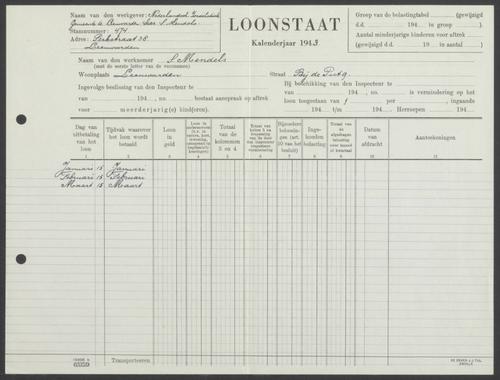 Naam van den werkgever: Nederlandsch Israëlitische
Gemeente te Leeuwarden
Stamnummer: 474.
Adres: Perkstraat 38
Leeuwarden
LOONSTAAT
Kalenderjaar 1943
Groep van de belastingtabel (gewijzigd
d.d. 194 in groep )
Aantal minderjarige kinderen voor aftrek
(gewijzigd d.d. 19 in aantal )
Naam van den werknemer S. Mendels
(met de eerste letter van de voornamen)
Woonplaats Leeuwarden Straat Bij de Put 9.
Ingevolge beslissing van den Inspecteur te
van 194 , no. bestaat aanspraak op aftrek
voor meerderjarig(e) kind(eren).
Bij beschikking van den Inspecteur te
van 194 , no. is vermindering op het
loon toegestaan van f per , ingaande
194 t/m 194 . Herroepen 194 .
Dag van uitbetaling van het loon
Tijdvak waarover het loon werd betaald
Loon in geld
Totaal van de kolommen 3 en 4
Datum van afdracht
Aanteekeningen
1 2 3 4 5 6 7 8 9 10 11
Januari 15 Januari
Februari 15 Februari
Maart 15 Maart
Transporteeren